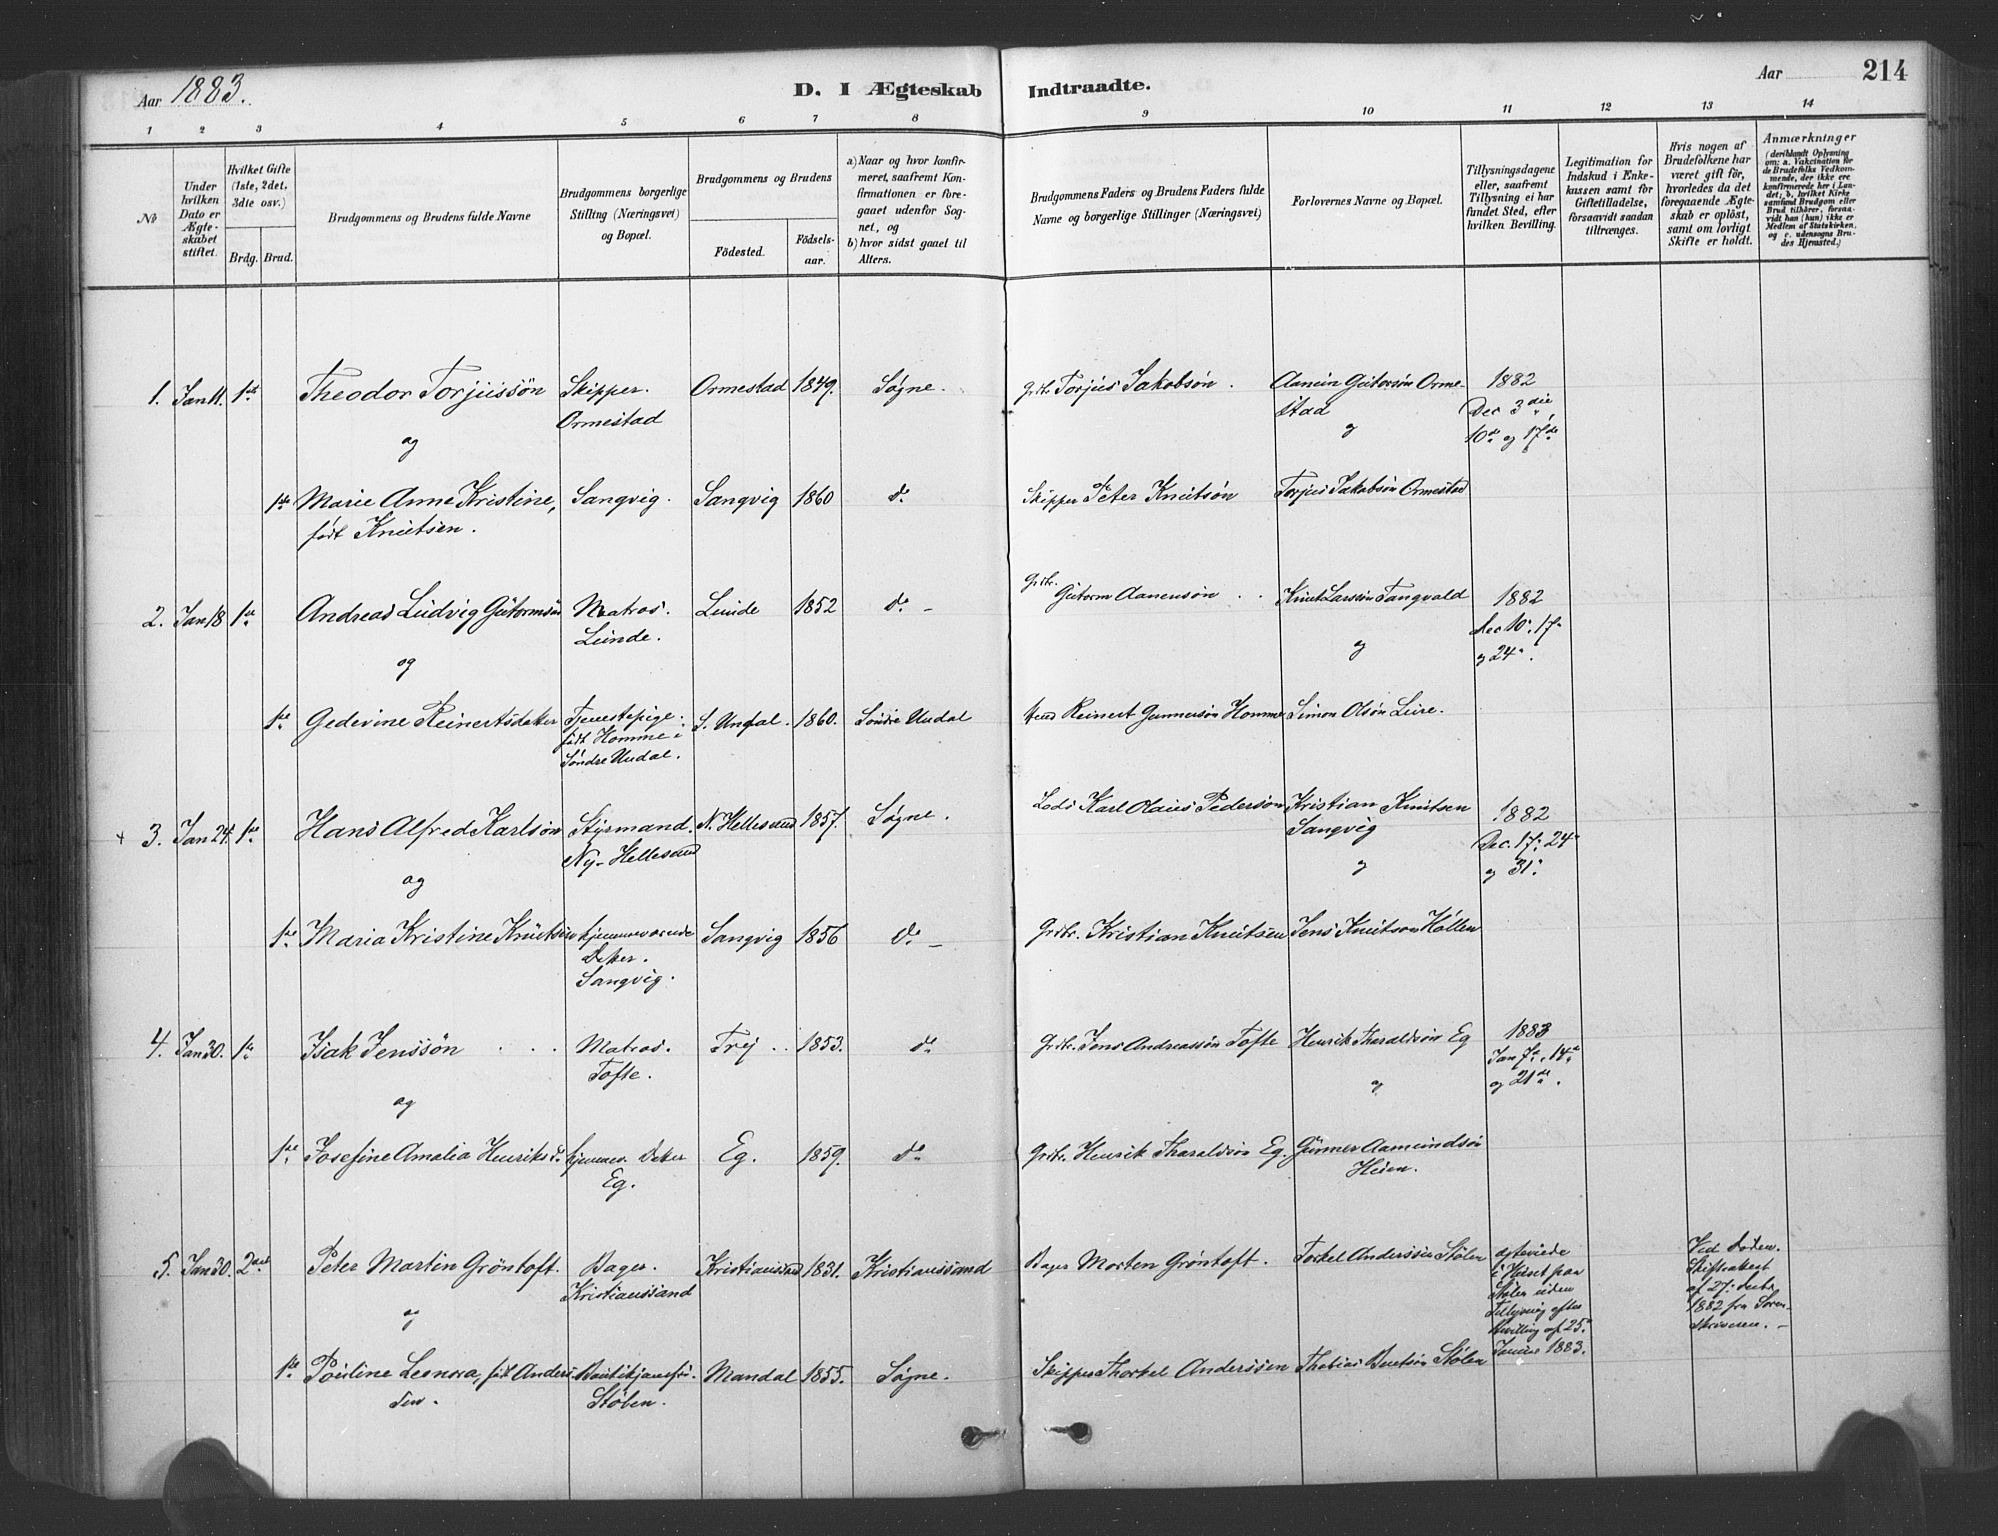 Aar 1883.
D. I Ægteskab Indtraadte.
Aar
214
1 2 3 4 5 6 7 8 9 10 11 12 13 14
No
Under hvilken Dato er Ægteskabet stiftet.
Hvilket Gifte (1ste, 2det, 3die osv.)
Brdg. Brud.
Brudgommens og Brudens fulde Navne
Brudgommens borgerlige Stilling (Næringsvei) og Bopæl.
Brudgommens og Brudens
Fødested.
Fødselsaar.
a) Naar og hvor konfirmeret, saafremt Konfirmationen er foregaaet udenfor Sognet, og
b) hvor sidst gaaet til Alters.
Brudgommens Faders og Brudens Faders fulde Navne og borgerlige Stillinger (Næringsvei)
Forlovernes Navne og Bopæl.
Tillysningsdagene eller, saafremt Tillysning ei har fundet Sted, efter hvilken Bevilling.
Legitimation for Indskud i Enkekassen samt for Giftetilladelse, forsaavidt saadan tiltrænges.
Hvis nogen af Brudefolkene har været gift før, hvorledes da det foregaaende Ægteskab er opløst, samt om lovligt Skifte er holdt.
Anmærkninger
(deriblandt Oplysning om: a. Vakcination for de Brudefolks Vedkommende, der ikke ere konfirmerede her i Landet; b. hvilket Kirkesamfund Brudgom eller Brud tilhører, forsaavidt han (hun) ikke er Medlem af Statskirken, og c. udensogns Brudes Hjemsted.)
1. Jan 11. 1ste Theodor Torjussøn Skipper. Ormestad 1849. Søgne. Grdbr. Torjus Jakobsøn. Ormestad 1882
Ormestad Dec 3die,
og og 10de og 17de
1ste Marie Anne Kristine, Sangvig. Sangvig 1860 do Skipper Peter Knutsøn Torjus Jakobsøn Ormestad
født Knutsen.
2. Jan 18 1ste Andreas Ludvig Gutormsøn Matros. Lunde 1852 do Grdbr. Gutorm Aanensøn Knut Larssøn Tangvald 1882
Lunde. Dec 10. 17
og og og 24.
1ste Gedevine Reinertsdater Tjenestepige. S. Undal. 1860. Søndre Undal Reinert Gunnersøn Homme Simon Olsøn Leire.
født Homme i
Søndre Undal.
3. Jan 24. 1ste Hans Alfred Karlsøn Styrmand. N. Hellesund 1857. Søgne. Lods Karl Olaus Pedersøn Kristian Knutsen 1882
Ny-Hellesund Sangvig Dec. 17. 24
og og og 31.
1ste Maria Kristine Knutsen hjemmeværende Sangvig 1856 do Grdbr. Kristian Knutsen Jens Knutson Høllen
Dater.
Sangvig.
4. Jan 30. 1ste Isak Jenssøn Matros. Trej 1853. do Grdbr. Jens Andreassøn Tofte Henrik Tharaldsøn Eg 1883
Tofte. Jan 7de, 14de
og og og 21de.
1ste Josefine Amalia Henriksd. hjemmev. Dater Eg. 1859. do Grdbr. Henrik Tharaldsøn Eg. Gunner Aamundsøn
Eg.
5. Jan 30. 2det Peter Martin Grøntoft. Bager. Kristianssand 1831. Kristianssand Bager Morten Grøntoft. Torkel Anderssen Stølen
Kristianssand
og
1ste Pouline Leonora, født Andersen. Mandal 1855. Søgne. Skipper Thorkel Anderssen Thobias Stølen
Stølen.
ægteviede i Huset paa Stølen uden Tillysning efter Bevilling af 25. Januar 1883.
Ved Døden. Skifteattest af 27. decbr. 1882 fra Sorenskriveren.